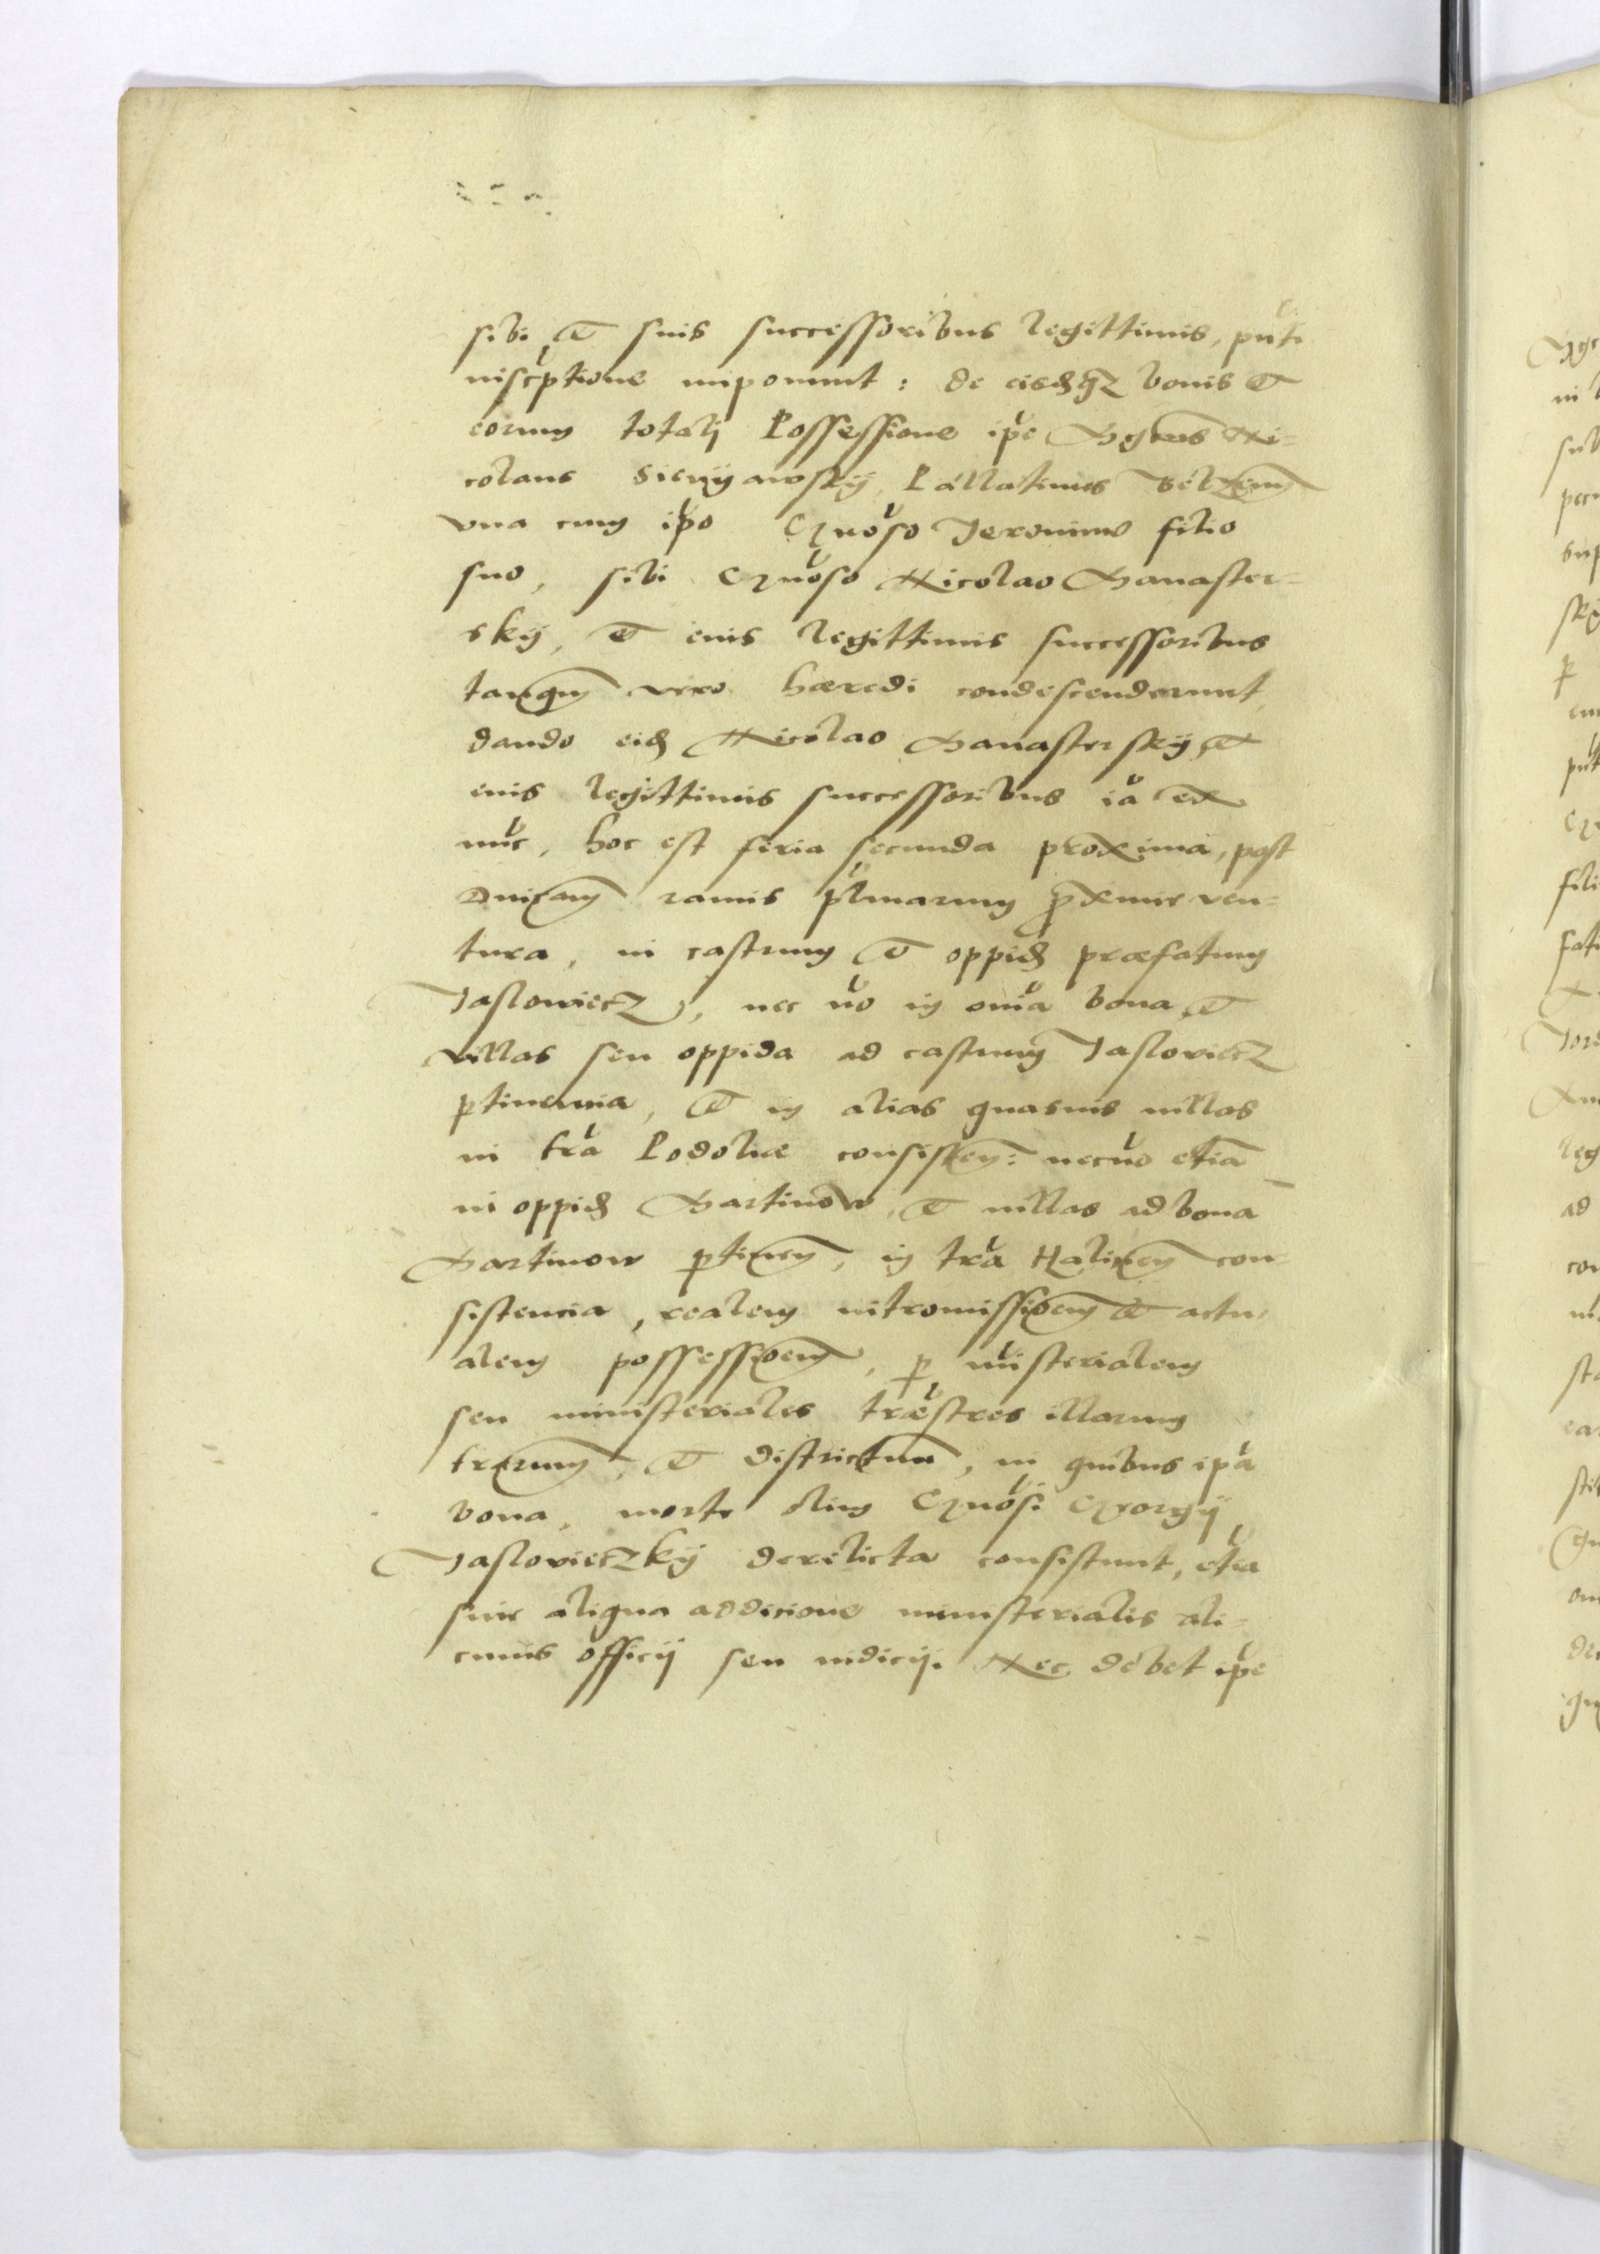 sibi et suis successoribus legittimis, pñti
inscptione imponunt: de eisdḡz bonis et
eorum totali Possessione ip̃e Mgcus Ni=
colaus Sienyawskÿ Pallatinus Belzeñ
vna cum ip̃o Gñoso Jeronimo filio
suo, sibi Gñoso Nicolao Banaster=
skÿ, et eius legittimis successoribus
tanq̃ vero hæredi condescenderunt,
dando eid Nicolao Banasterskÿ et
eius legittimis successoribus iã ex
nũc, hoc est feria secunda proxima, post
Dnicam ramis p̃lmarum ꝓxime ven=
tura, in castrum et oppid præfatum
Jaslowiecz, nec nõ in oñia bona et
villas seu oppida ad castrum Jasloviecz
ptinencia, et in alias quasuis villas
in trã Podoliæ consisteñ: necnõ etiã
in oppid Martinow, et villas ad bona
Martinow ptineñ, in trã Haliceñ con=
sistencia, realem intromissioem et actu=
alem possessioem, p mĩsterialem
seu ministeriales trẽstres illarum
trarum, et districtuum, in quibus ip̃a
bona, morte olim Gñosi Georgÿ
Jaslovieczkÿ derelicta consistunt, etiã
sine aliqua addicione ministerialis ali=
cuius officÿ seu iudicÿ. Nec debet ip̃e